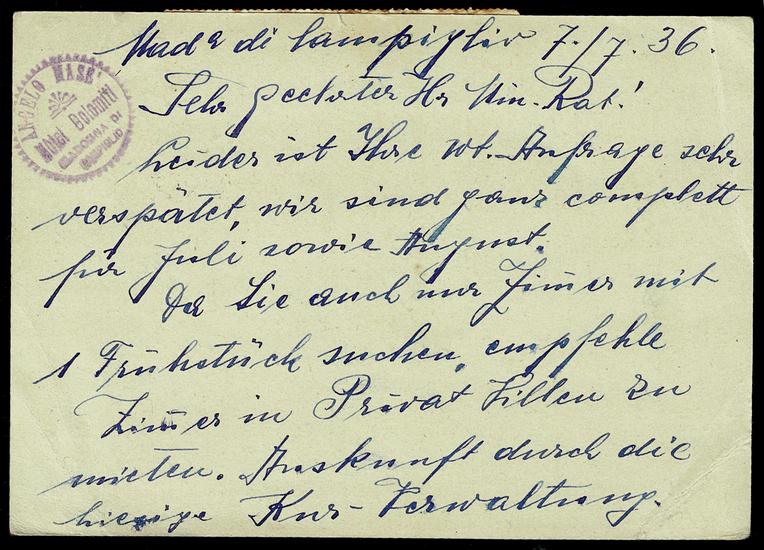 Madª di Campiglio 7./7. 36.
ANGELO MASE'
Hôtel Dolomiti
MADONNA DI
CAMPIGLIO
Sehr geehrter Hr Min.-Rat!
Leider ist Ihre wt. Anfrage sehr
verspätet, wir sind ganz complett
für Juli sowie August.
Da Sie auch nur Zim̅er mit
1 Frühstück suchen, empfehle
Zim̅er in Privat Villen zu
mieten. Auskunft durch die
hiesige Kur-Verwaltung.